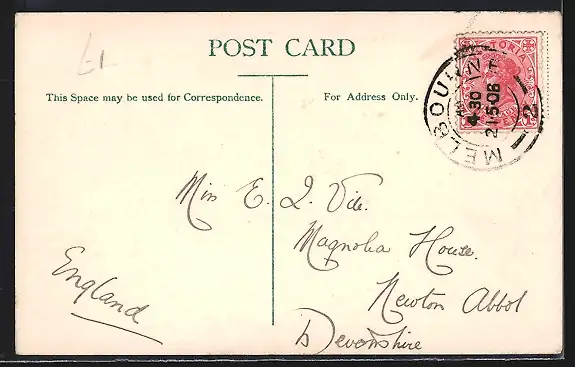 £1
POST CARD
This Space may be used for Correspondence.
For Address Only.
VICTORIA
MELBOU
4 30
21 5 08
2
Miss E. Q. Vile.
Magnolia House.
Newton Abbot
Devonshire
England